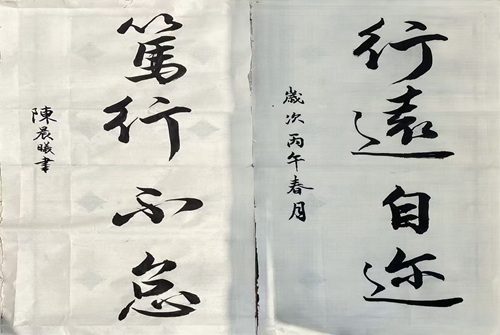 行遠自迩
歲次丙午春月
篤行不怠
陳晨曦書